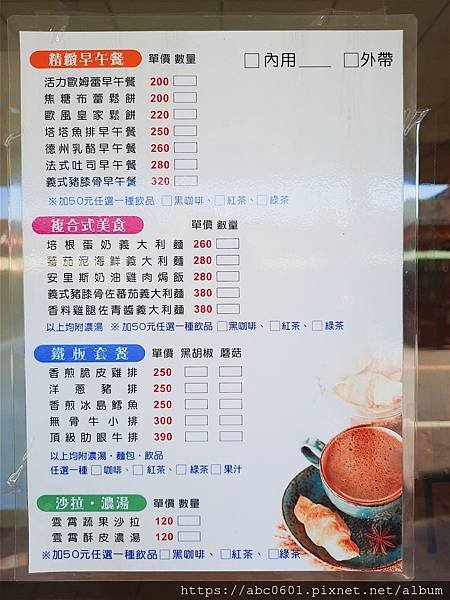 精緻早午餐 單價 數量 □內用____ □外帶
活力歐姆蕾早午餐 200 □
焦糖布蕾鬆餅 200 □
歐風皇家鬆餅 220 □
塔塔魚排早午餐 250 □
德州乳酪早午餐 260 □
法式吐司早午餐 280 □
義式豬膝骨早午餐 320 □
※加50元任選一種飲品 □黑咖啡、□紅茶、□綠茶
複合式美食 單價 數量
培根蛋奶義大利麵 260 □
蕃茄泥海鮮義大利麵 280 □
安里斯奶油雞肉焗飯 280 □
義式豬膝骨佐蕃茄義大利麵 380 □
香料雞腿佐青醬義大利麵 380 □
以上均附濃湯 ※加50元任選一種飲品□黑咖啡、□紅茶、□綠茶
鐵板套餐 單價 黑胡椒 蘑菇
香煎脆皮雞排 250 □ □
洋蔥豬排 250 □ □
香煎冰島鱈魚 250 □ □
無骨牛小排 300 □ □
頂級肋眼牛排 390 □ □
以上均附濃湯、麵包、飲品
任選一種□咖啡、□紅茶、□綠茶□果汁
沙拉・濃湯 單價 數量
雲霄蔬果沙拉 120 □
雲霄酥皮濃湯 120 □
※加50元任選一種飲品□黑咖啡、□紅茶、□綠茶
https://abc0601.pixnet.net/album